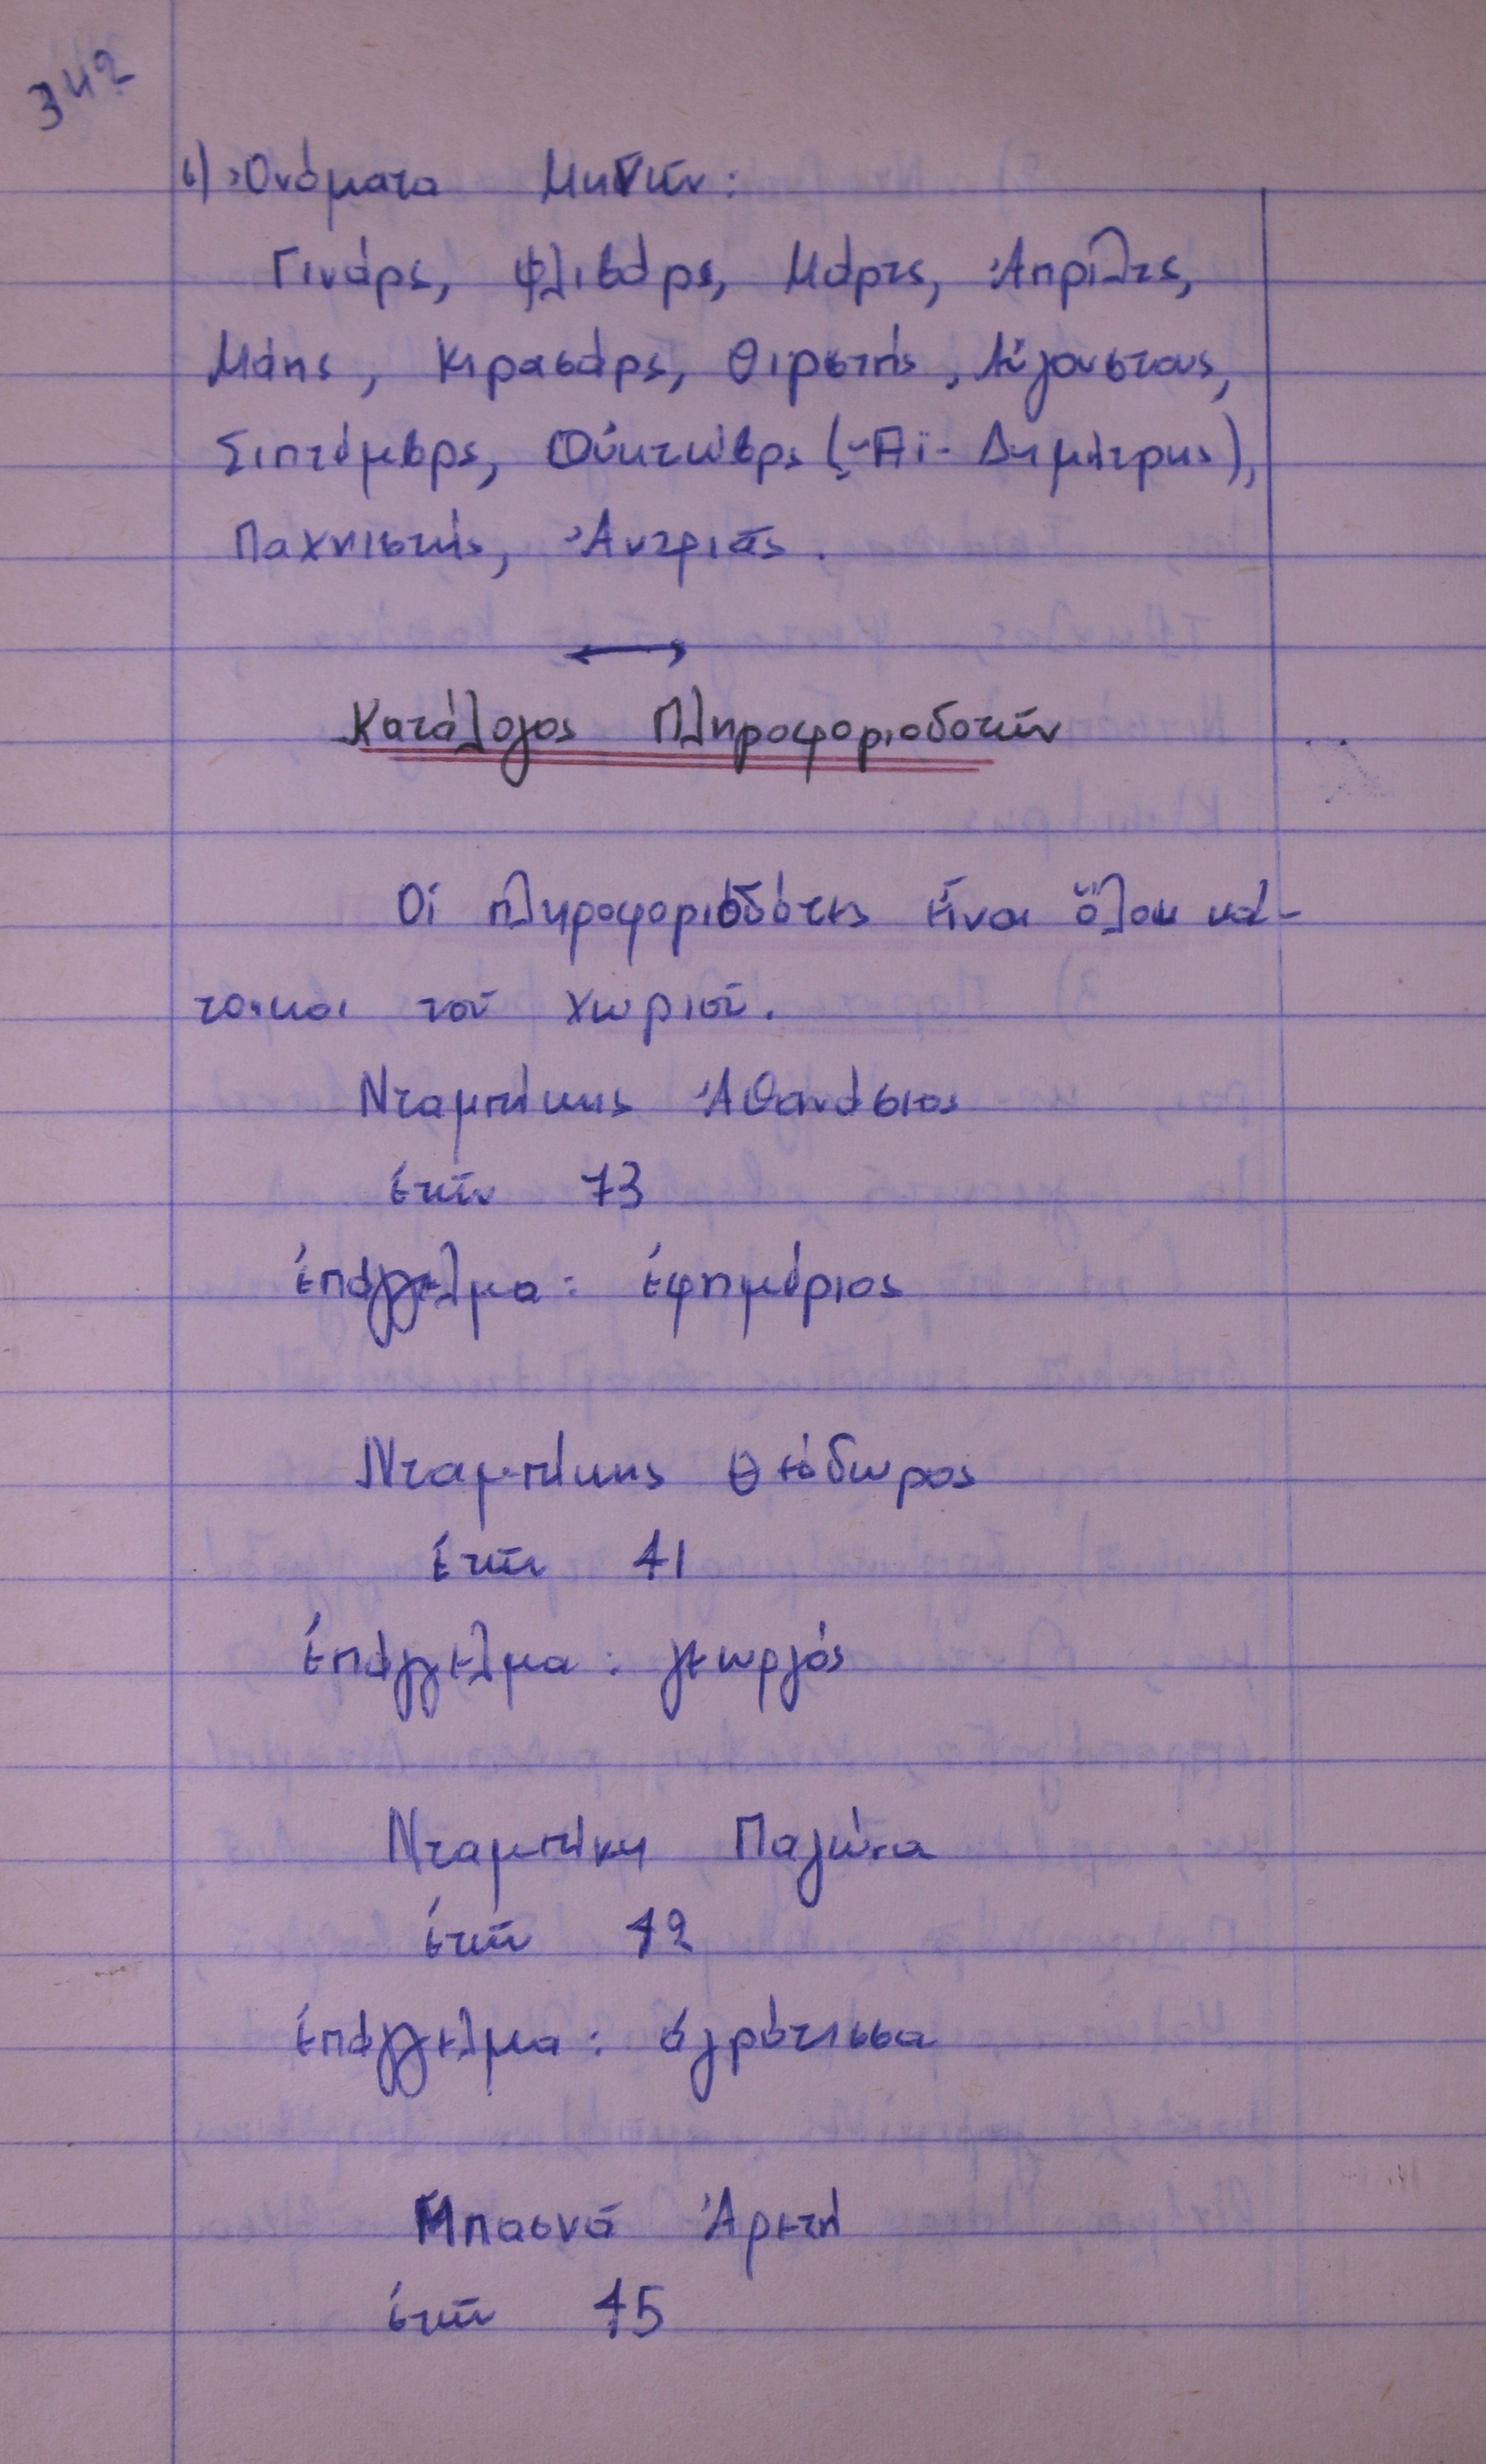 342
6) Ὀνόματα Μηνῶν:
Γινάρς, Φλιβάρς, Μάρτς, Ἀπρίλτς,
Μάης, Κιρασάρς, Θιριστής, Αὔγουστους,
Σιπτέμβρς, Οὐκτώβρς (-Αϊ-Δημήτρης),
Παχνιστής, Ἀντριᾶς.
Κατάλογος Πληροφοριοδοτῶν
Οἱ πληροφοριοδότες εἶναι ὅλοι κά-
τοικοι τοῦ χωριοῦ.
Νταμπίκης Ἀθανάσιος
ἐτῶν 73
ἐπάγγελμα: ἐφημέριος
Νταμπίκης Θεόδωρος
ἐτῶν 41
ἐπάγγελμα: γεωργός
Νταμπίκη Παγώνα
ἐτῶν 42
ἐπάγγελμα: ἀγρότισσα
Μπασνά Ἀρετή
ἐτῶν 45